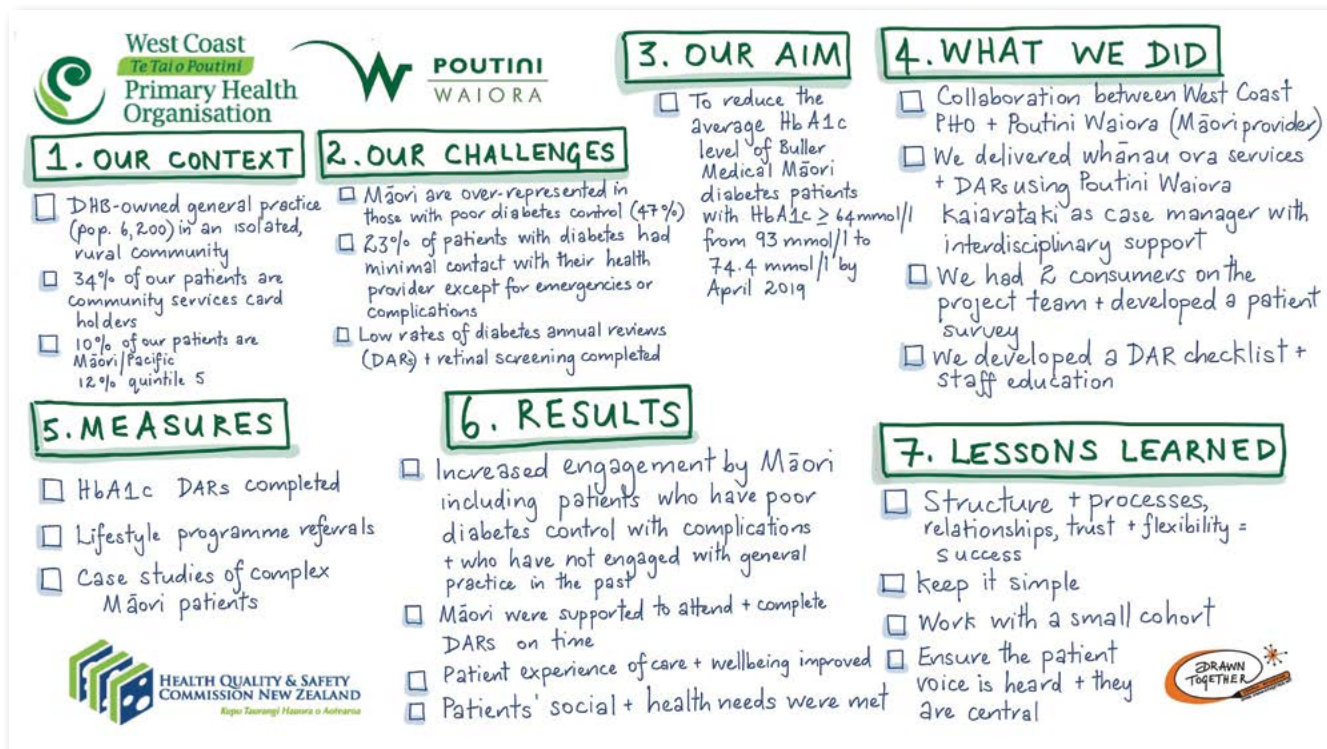 West Coast
Te Tai o Poutini
Primary Health
Organisation
POUTINI
WAIORA
1. OUR CONTEXT
DHB-owned general practice
(pop. 6,200) in an isolated,
rural community
34% of our patients are
community services card
holders
10% of our patients are
Māori/Pacific
12% quintile 5
2. OUR CHALLENGES
Māori are over-represented in
those with poor diabetes control (47%)
23% of patients with diabetes had
minimal contact with their health
provider except for emergencies or
complications
Low rates of diabetes annual reviews
(DARs) + retinal screening completed
3. OUR AIM
To reduce the
average HbA1c
level of Buller
Medical Māori
diabetes patients
with HbA1c ≥ 64mmol/l
from 93 mmol/l to
74.4 mmol/l by
April 2019
4. WHAT WE DID
Collaboration between West Coast
PHO + Poutini Waiora (Māori provider)
We delivered whānau ora services
+ DARs using Poutini Waiora
Kaiarataki as case manager with
interdisciplinary support
We had 2 consumers on the
project team + developed a patient
survey
We developed a DAR checklist +
staff education
5. MEASURES
HbA1c DARs completed
Lifestyle programme referrals
Case studies of complex
Māori patients
6. RESULTS
Increased engagement by Māori
including patients who have poor
diabetes control with complications
+ who have not engaged with general
practice in the past
Māori were supported to attend + complete
DARs on time
Patient experience of care + wellbeing improved
Patients' social + health needs were met
7. LESSONS LEARNED
Structure + processes,
relationships, trust + flexibility =
success
Keep it simple
Work with a small cohort
Ensure the patient
voice is heard + they
are central
HEALTH QUALITY & SAFETY
COMMISSION NEW ZEALAND
Kupu Taurangi Hauora o Aotearoa
DRAWN
TOGETHER